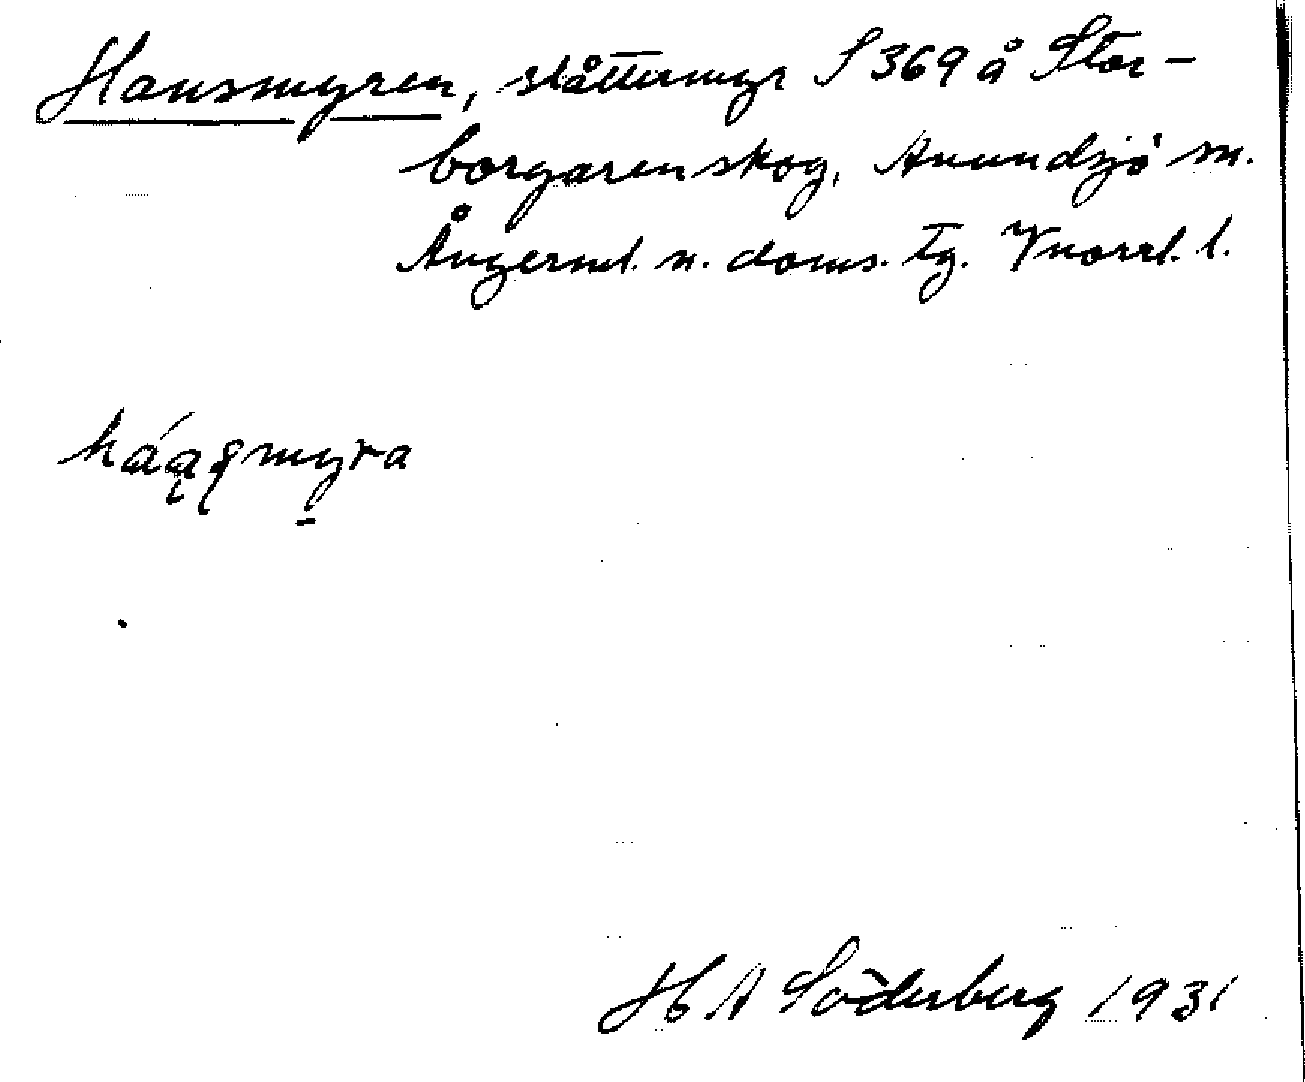 Hansmyren, slåttermyr S 369 å Stor-
borgaren skog, Anundsjö sn.
Ångerml. n. doms. tg. Vnorrl. l.
H A Söderberg 1931